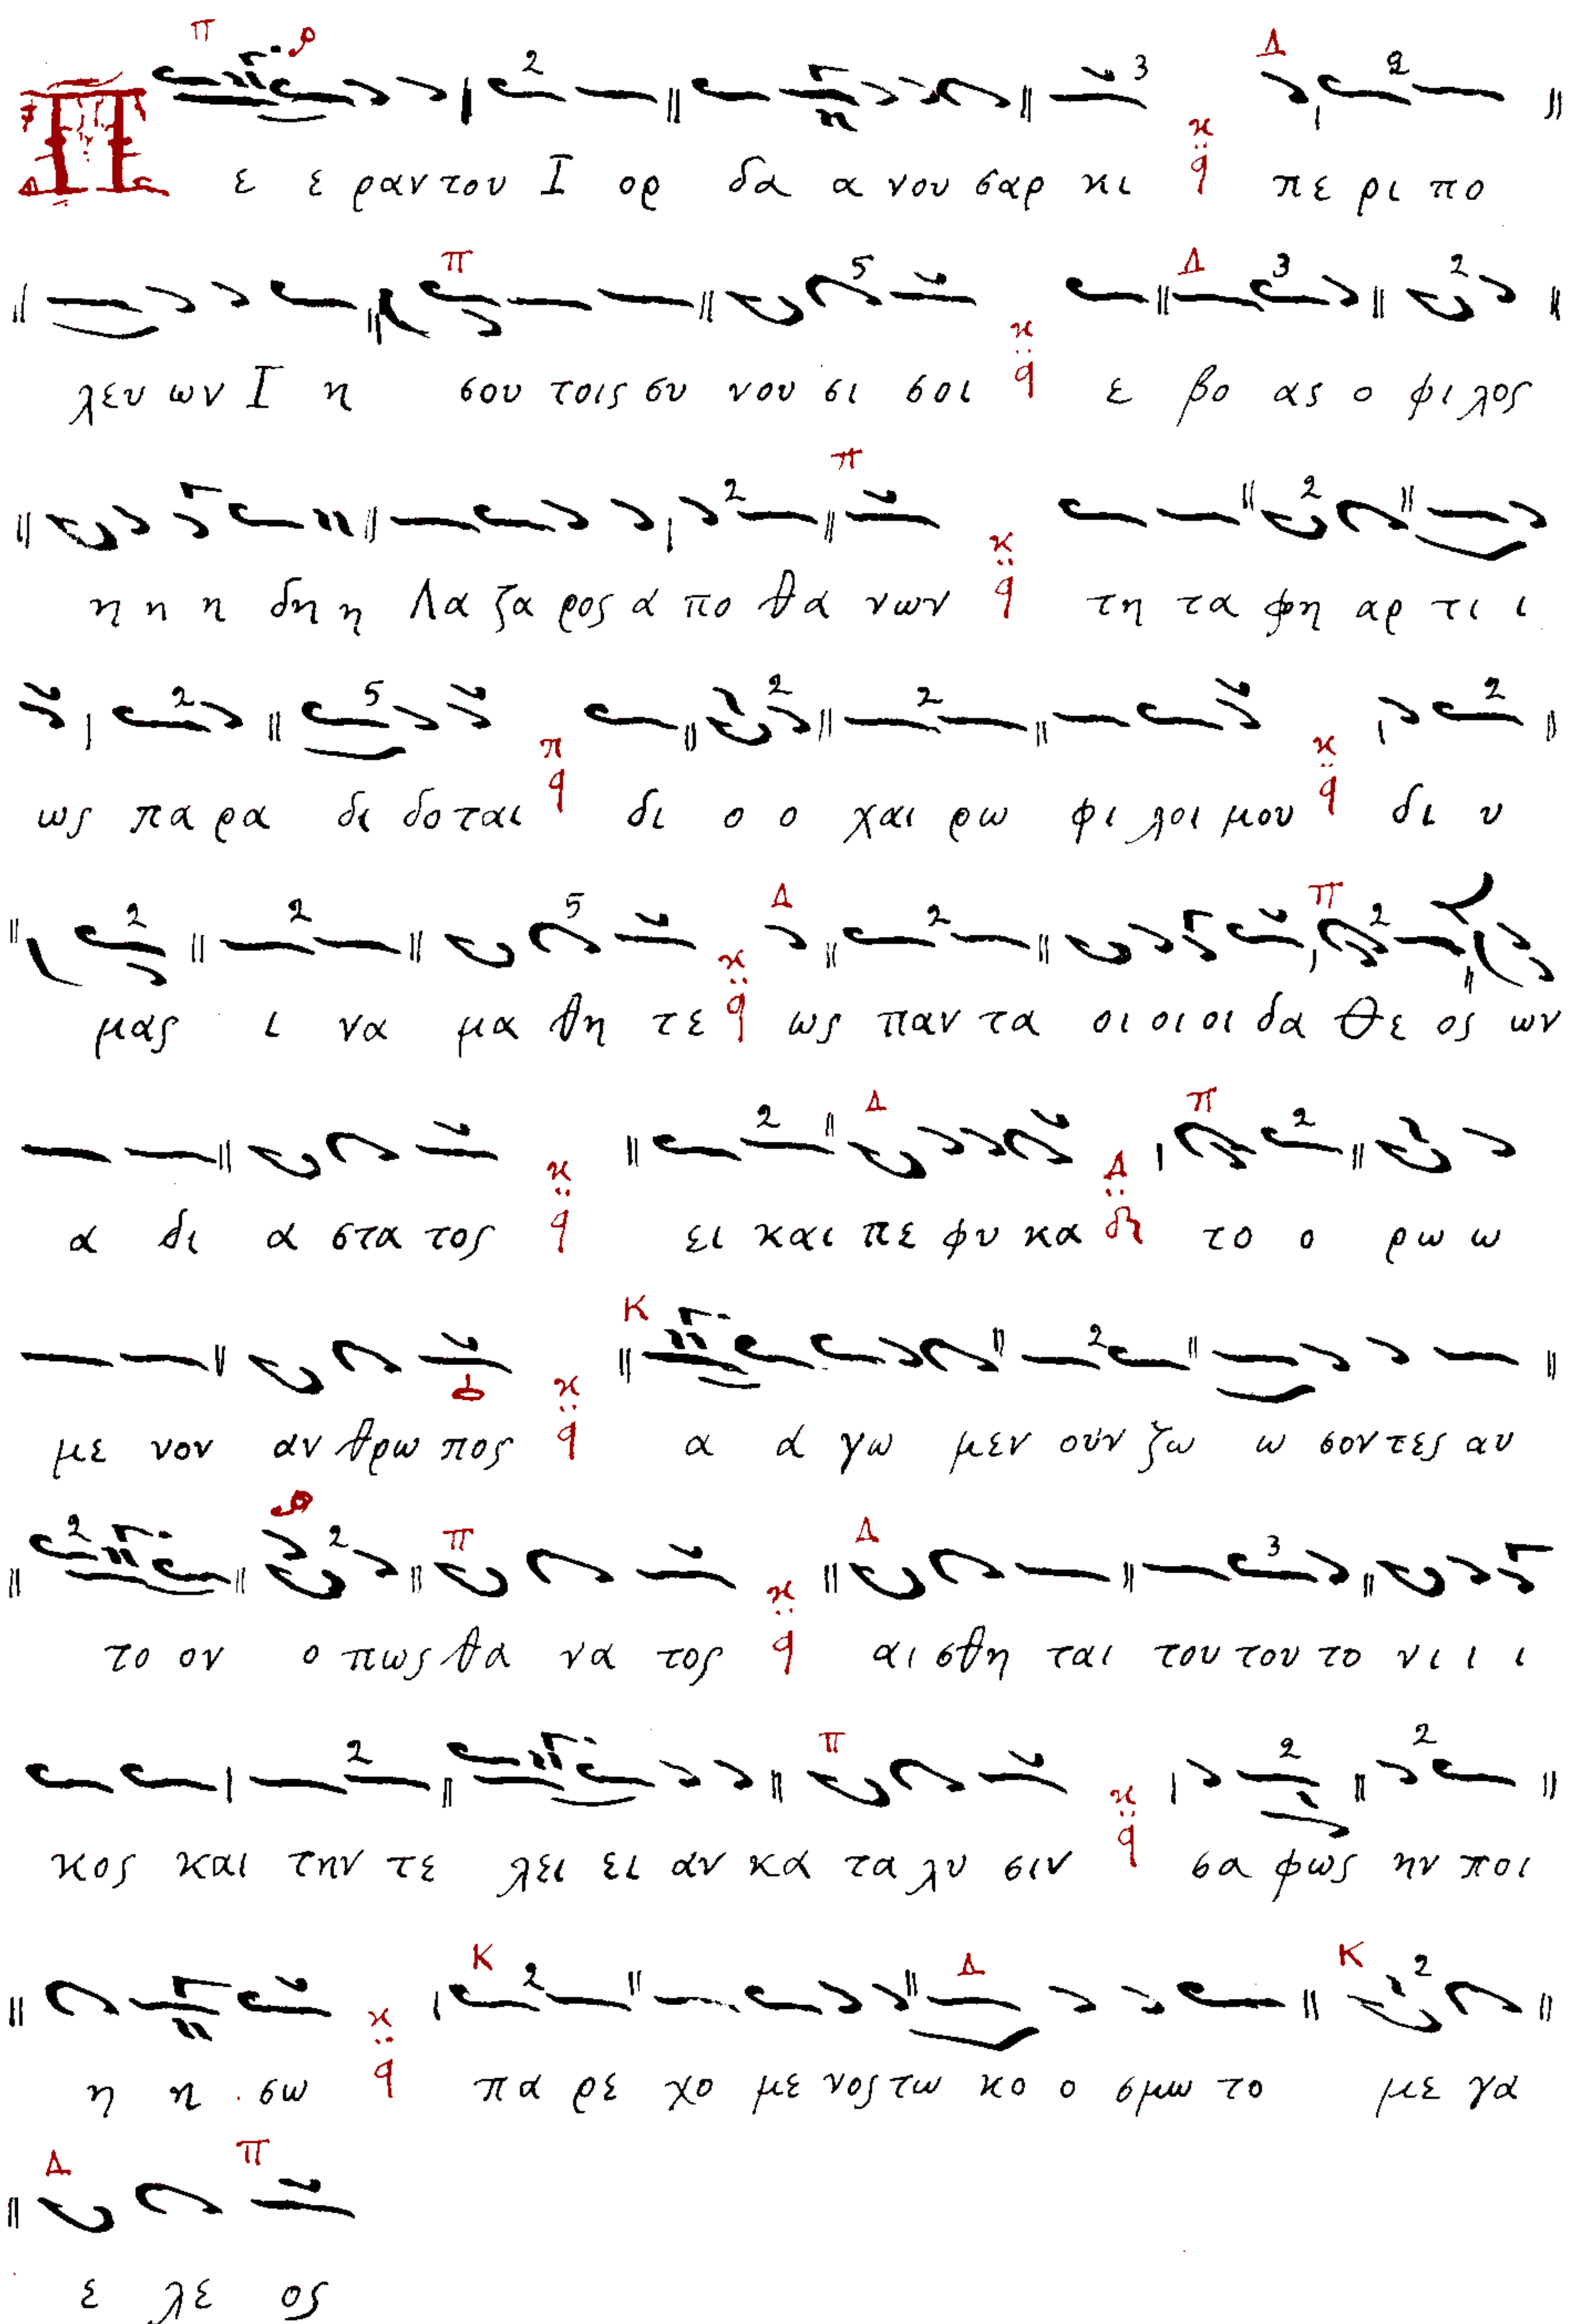 Π ε ε ραν του Ι ορ δα α νου σαρ κι πε ρι πο
λευ ων Ι η σου τοις συ νου σι σοι ε βο ας ο φι λος
η η η δη η Λα ζα ρος α πο θα νων τη τα φη αρ τι ι
ως πα ρα δι δο ται δι ο ο χαι ρω φι λοι μου δι υ
μας ι να μα θη τε ως παν τα οι οι οι δα Θε ος ων
α δι α στα τος ει και πε φυ κα το ο ρω ω
με νον αν θρω πος α ά γω μεν ούν ζω ω σον τες αυ
το ον ο πως θα να τος αι σθη ται του του το νι ι ι
κος και την τε λει ει αν κα τα λυ σιν σα φως ην ποι
η η σω πα ρε χο με νος τω κο ο σμω το με γα
ε λε ος